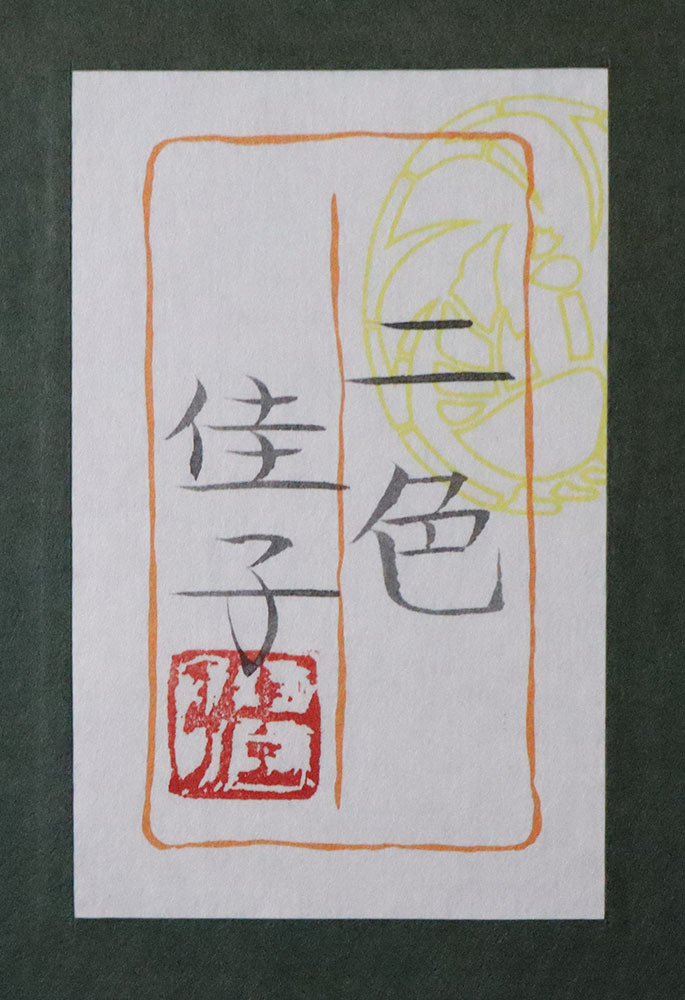 二色
佳子